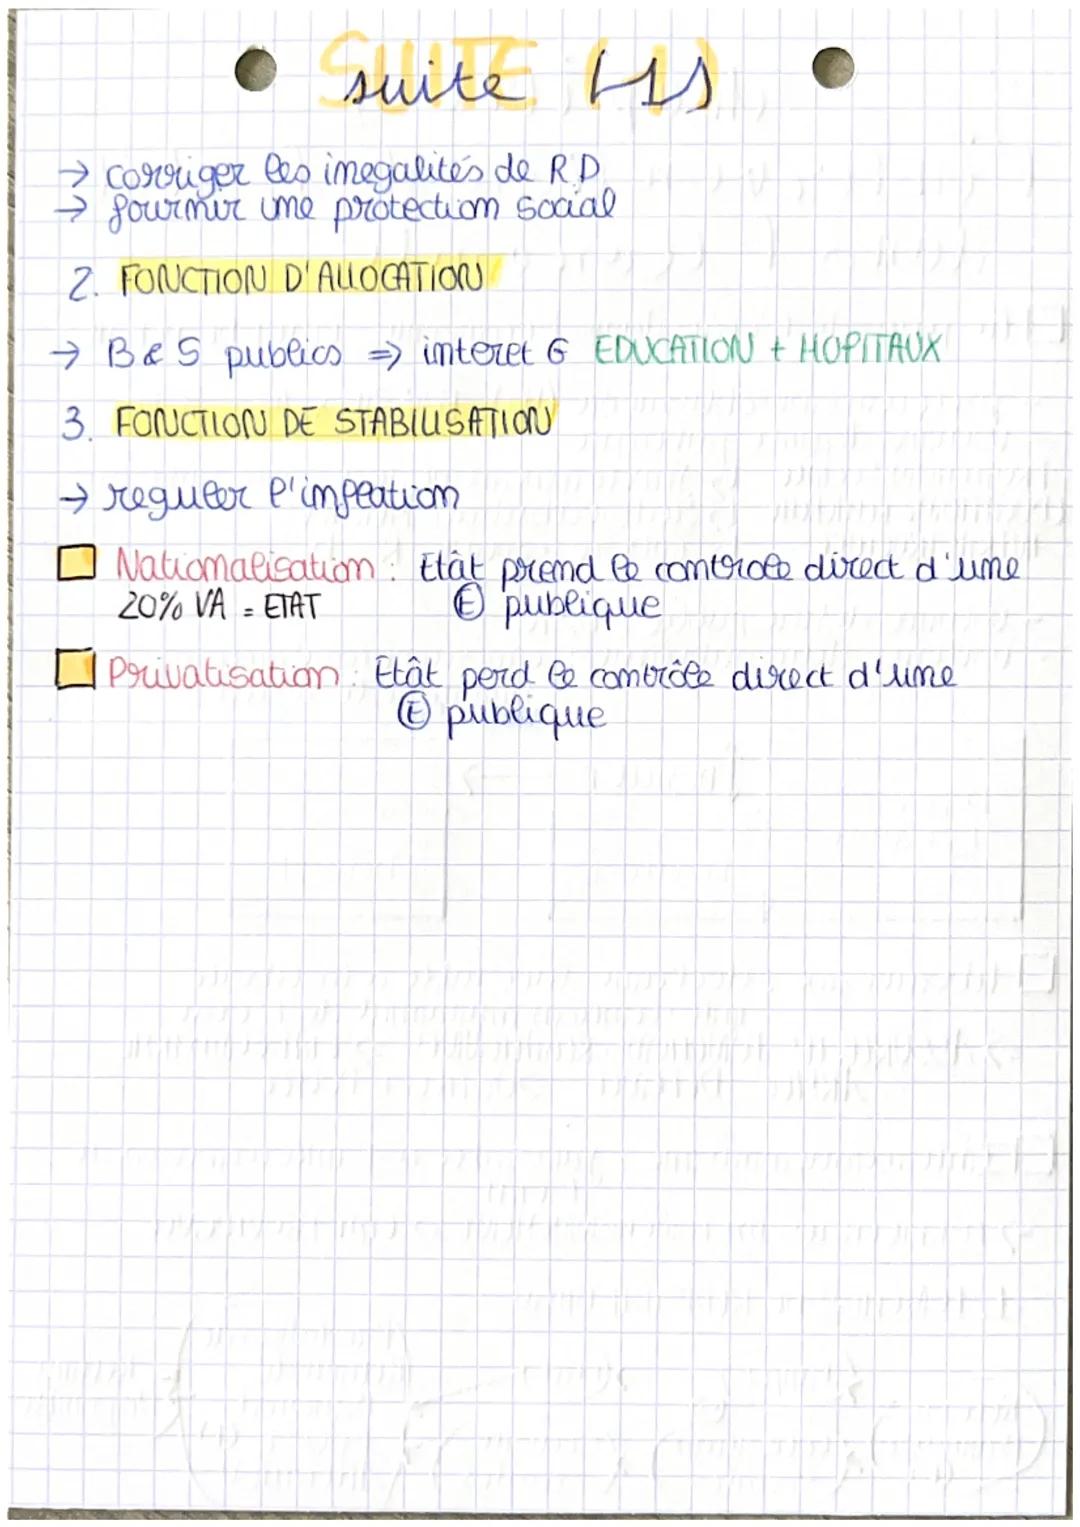 SUITE (1)
suite (1)
→ corriger les inegalités de R.D
→ fournir une protection social
2. FONCTION D'ALLOCATION
→ B & S publics ⇒ interet G EDUCATION + HOPITAUX
3. FONCTION DE STABILISATION
→ reguler l'inflation
Nationalisation : Etât prend le controle direct d'une
20% VA = ETAT Ⓔ publique
Privatisation : Etât perd le contrôle direct d'une
Ⓔ publique